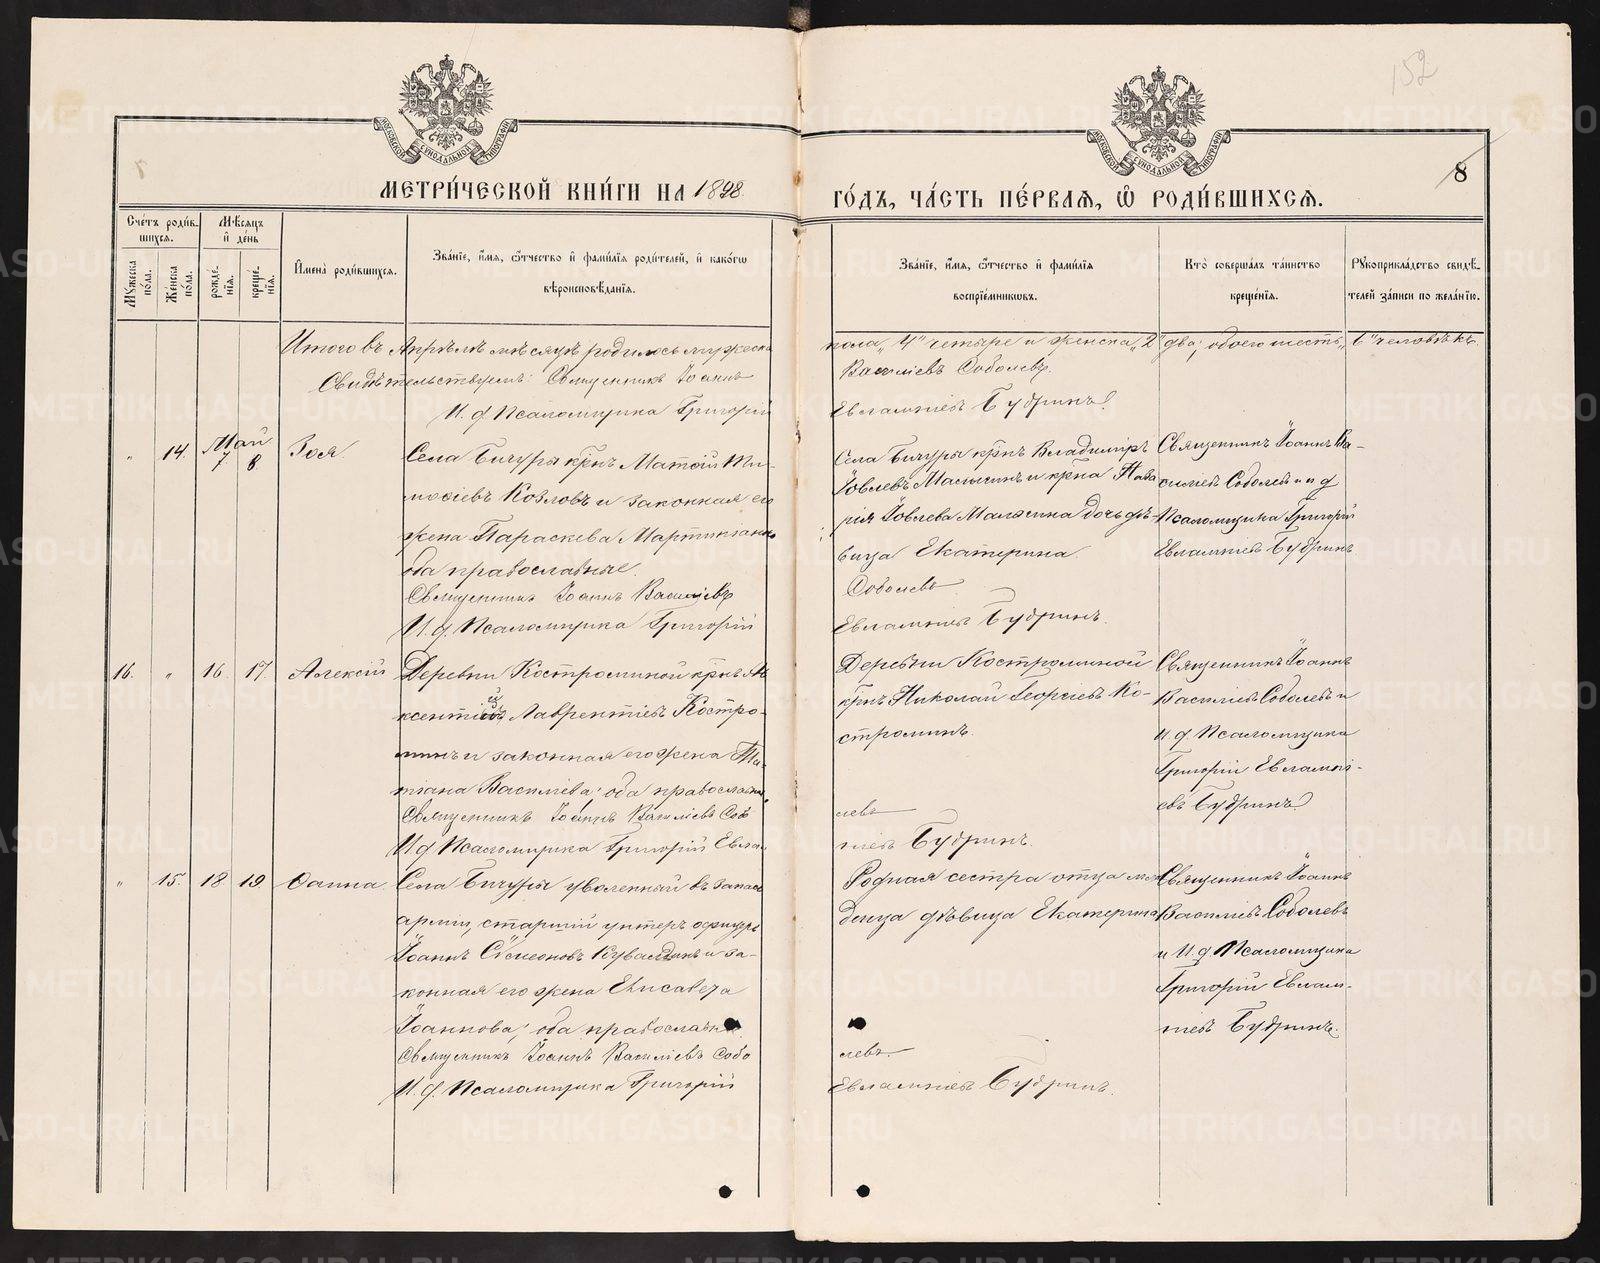 152
МОСКОВСКОЙ СѴНОДАЛЬНОЙ ТИПОГРАФІИ
МОСКОВСКОЙ СѴНОДАЛЬНОЙ ТИПОГРАФІИ
8
МЕТРИ́ЧЕСКОЙ КНИ́ГИ НА 1898 ГО́ДЪ, ЧА́СТЬ ПЕ́РВАЯ, Ѽ РОДИ́ВШИХСЯ.
Сче́тъ роди́вшихся.
Мѣ́сяцъ и҆ де́нь
Мꙋ́жеска по́ла.
Же́нска по́ла.
рожде́нїя.
креще́нїя.
И҆мена̀ роди́вшихся.
Зва́нїе, и҆́мя, ѻ҆́тчество и҆ фами́лїя роди́телей, и҆ како́гѡ вѣроисповѣ́данїя.
Зва́нїе, и҆́мя, ѻ҆́тчество и҆ фами́лїя воспрїе́мникѡвъ.
Кто̀ соверша́лъ та́инство креще́нїя.
Рꙋкоприкла́дство свидѣ́телей за́писи по жела́нїю.
Итого въ Апрѣлѣ мѣсяцѣ родилось мужеска пола „4" четыре и женска „2" два; обоего шесть „6" человѣкъ.
Свидѣтельствуемъ: Священникъ Іоаннъ Василіевъ Соболевъ.
И. д. Псаломщика Григорій Евлампіевъ Будринъ.
„ 14. Май 7 8 Зоя.
Села Бичуры крнъ Матѳій Ти-
моѳіевъ Козловъ и законная его
жена Параскева Мартиніанова
оба православные.
Священникъ Іоаннъ Василіевъ
И. д. Псаломщика Григорій
Села Бичуры крнъ Владиміръ
Іовлевъ Малыгинъ и крна
рія Іовлева Малыгина дочь дѣ-
вица Екатерина
Соболевъ
Евлампіевъ Будринъ.
Священникъ Іоаннъ Ва-
силіевъ Соболевъ и и д
Псаломщика Григорій
Евлампіевъ Будринъ
16. „ 16. 17. Алексій
Деревни Костроминой крнъ Ав-
ксентій Лаврентіевъ Костро-
минъ и законная его жена Та-
тіана Василіева; оба православные.
Священникъ Іоаннъ Василіевъ Собо
И д. Псаломщика Григорій Евлам
Деревни Костроминой
крнъ Николай Георгіевъ Ко-
строминъ.
левъ
піевъ Будринъ.
Священникъ Іоаннъ
Василіевъ Соболевъ и
и д. Псаломщика
Григорій Евлампі-
евъ Будринъ
„ 15. 18 19. Фаина
Села Бичуры уволенный въ запасъ
арміи, старшій унтеръ офицеръ
Іоаннъ Сѵмеоновъ Кувалдинъ и за-
конная его жена Елисавета
Іоаннова; оба православные
Священникъ Іоаннъ Василіевъ Собо
И. д. Псаломщика Григорій
Родная сестра отца мла
денца дѣвица Екатерина
левъ.
Евлампіевъ Будринъ.
Священникъ Іоаннъ
Василіевъ Соболевъ
и И. д Псаломщика
Григорій Евлам-
піевъ Будринъ.
METRIKI.GASO-URAL.RU